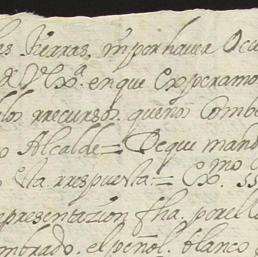 las tierras, ni por haver Ocu
R. Vexª. en que Experamo
los rrecursos. que no Combe
o Alcalde = Deque mand
esta rrespuesta = Exmo. SS
representazion fha, por ella
mbrado, español. blanco